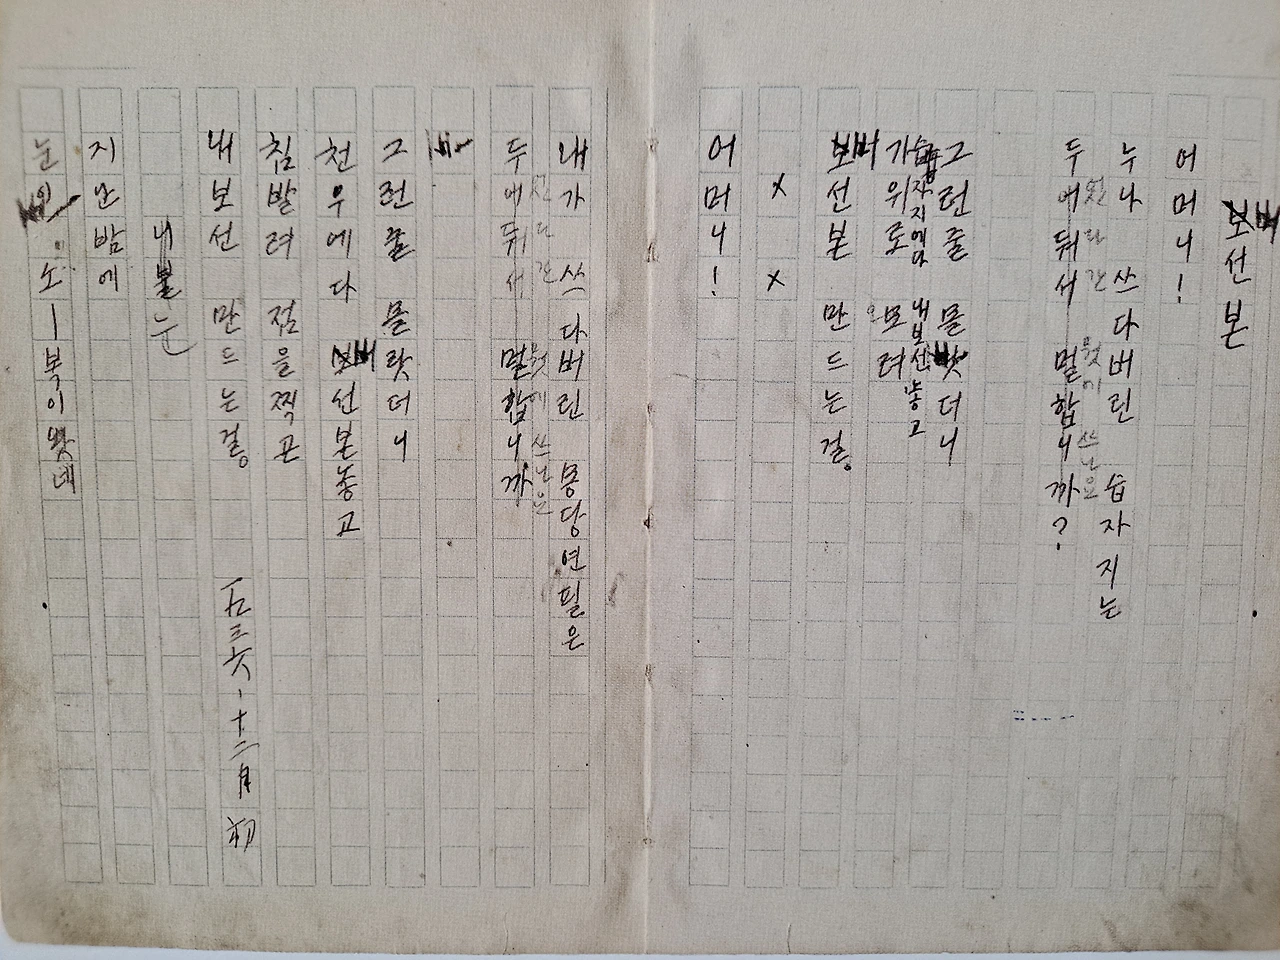 버선본
어머니!
누나 쓰다버린 습자지는
두에둬서 멀합니까?
뭣에 쓰난요
그런줄 몰랏더니
습자지에다 내보선놓고
가위로 오려
버선본 만드는걸。
× ×
어머니!
내가 쓰다버린 몽당연필은
두에둬서 멀합니까
뭣에 쓰난요
그런줄 몰랏더니
천우에다 버선본놓고
침발려 점을찍곤
내보선 만드는걸。
一九三六、十二月初
눈
지난밤에
눈이 소ㅡ복이 왓네